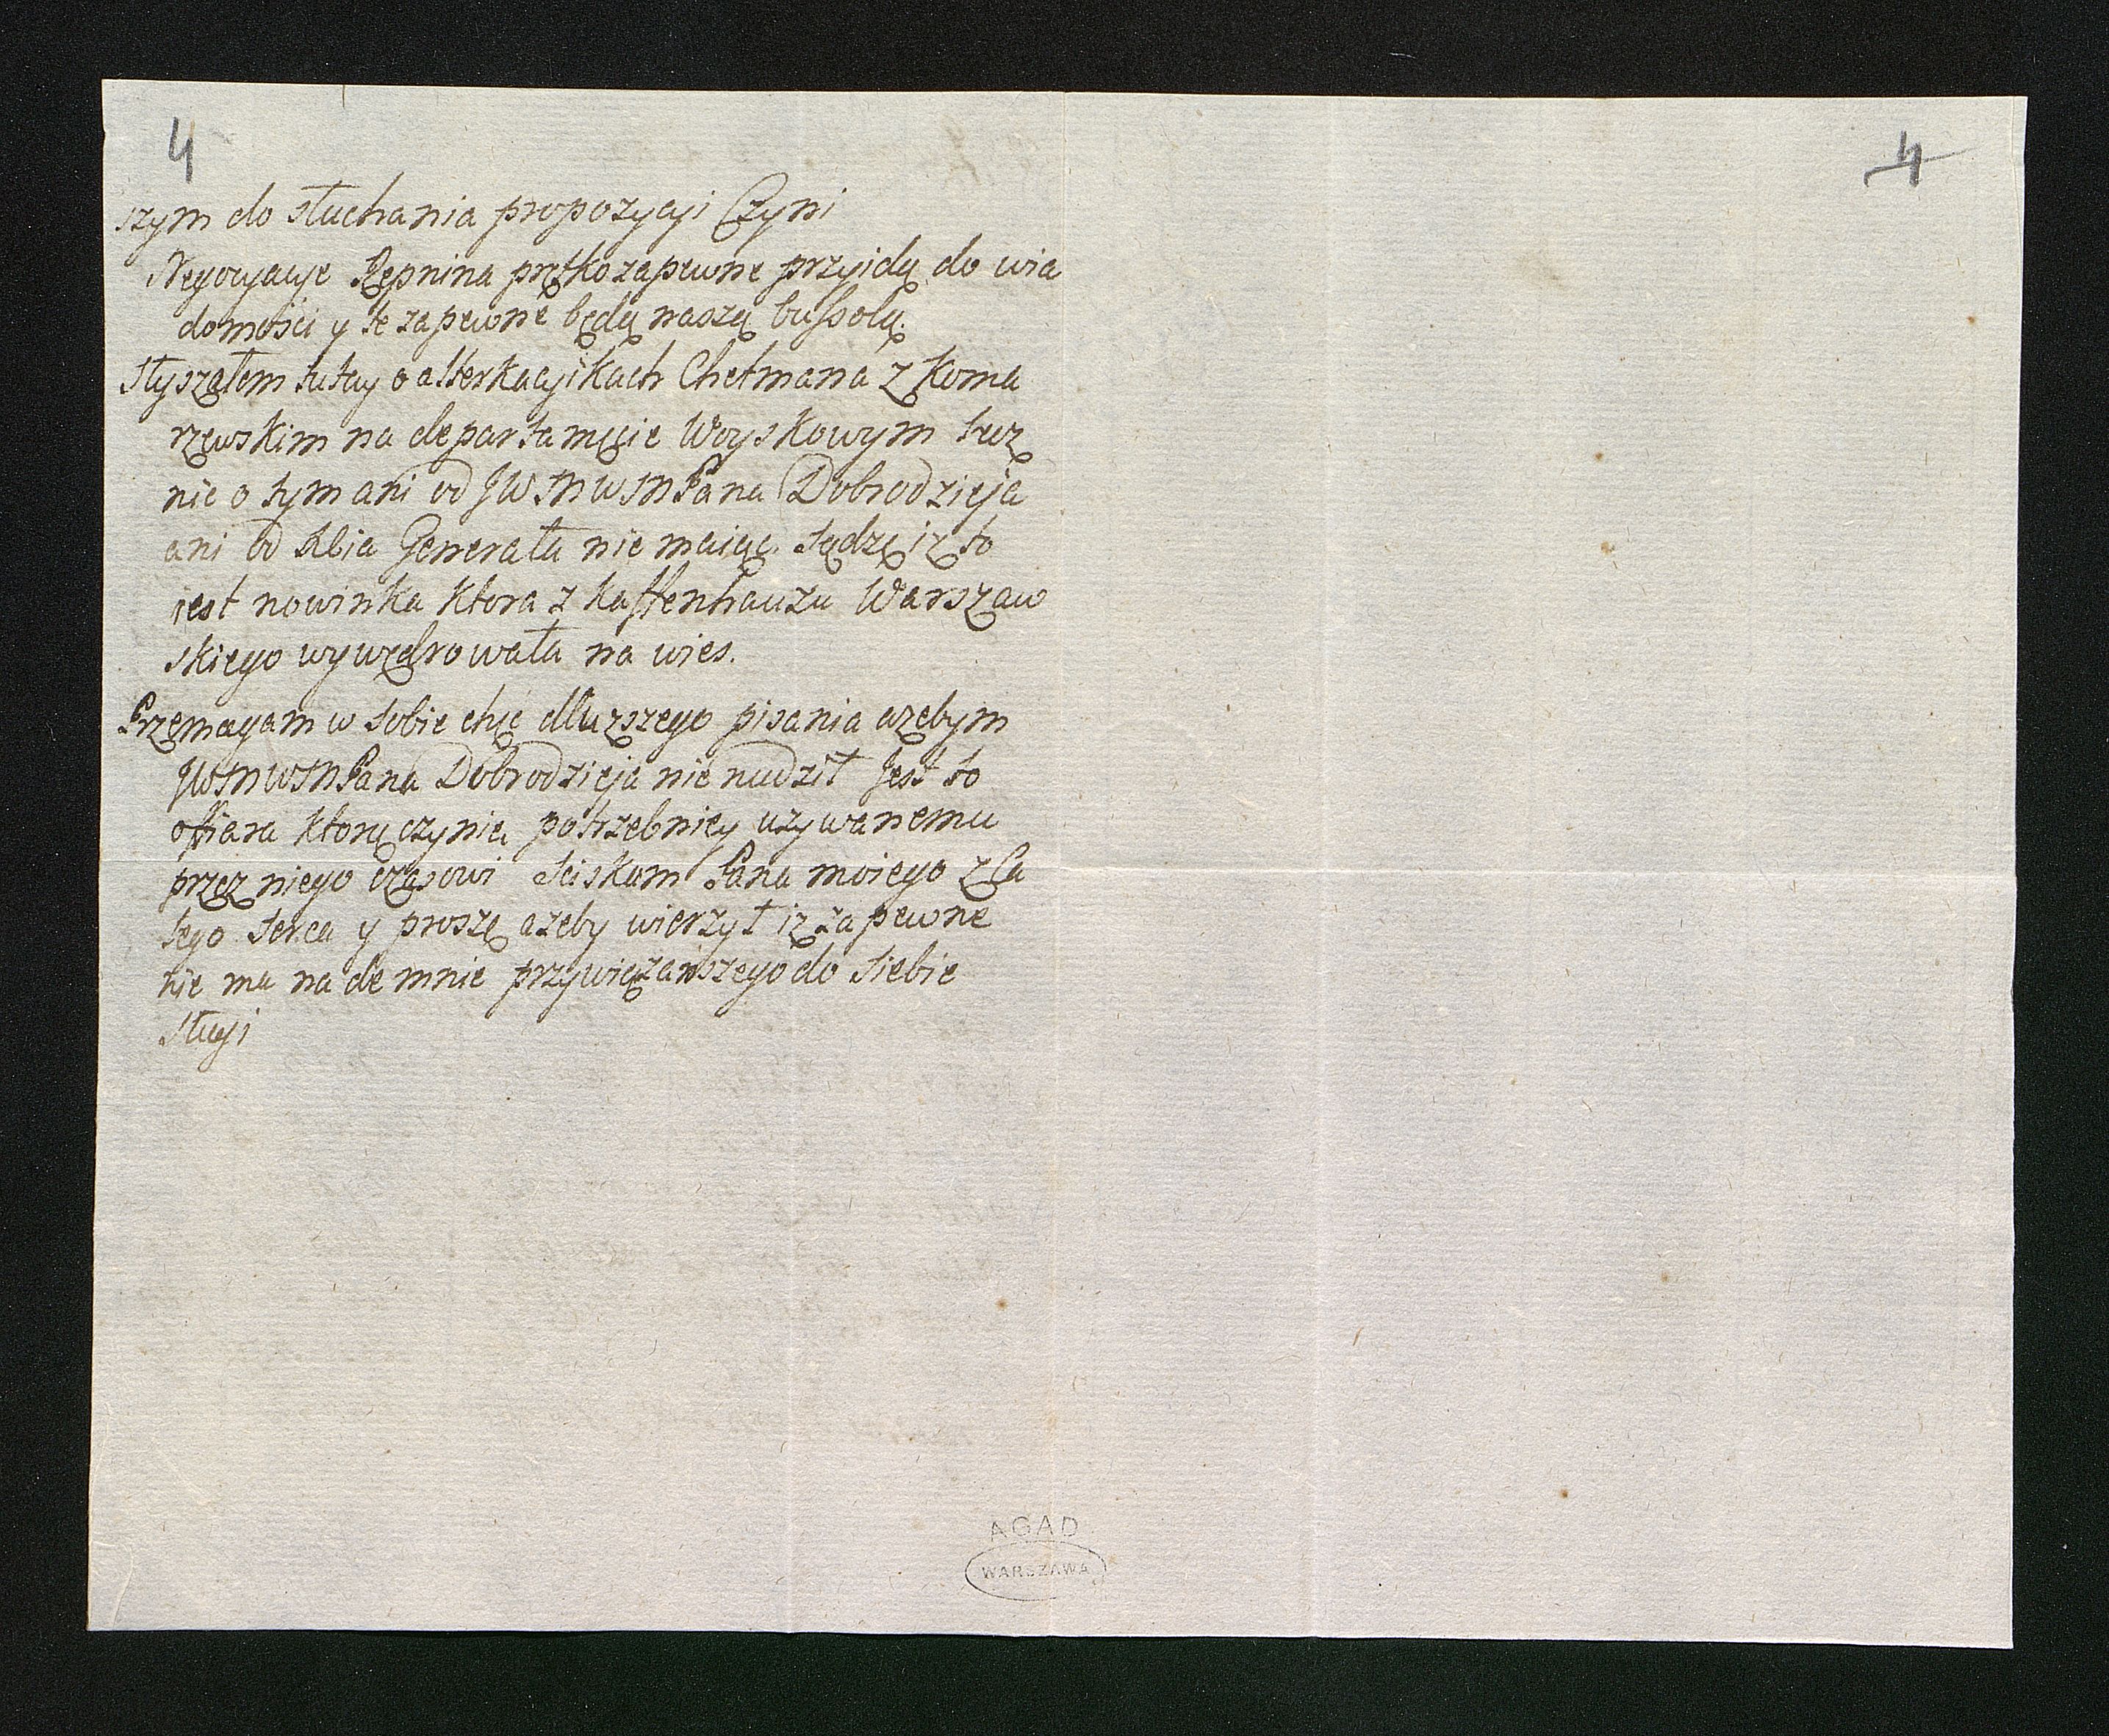 4
4
szym do słuchania propozycji Czyni
Negocyacye Repnina prętko zapewne przyidą do wia
domości y te zapewne będą naszą bussolą.
Słyszałem tutay o alterkacyikach Chetmana z Koma
rzewskim na departamęcie Woyskowym lecz
nie o tym ani od JWMWMPana Dobrodzieja
ani od Xcia Generała nie maiąc sądzę iz to
iest nowinka ktora z kaffenhauzu Warszaw
skiego wywędrowała na wies.
Przemagam w sobie chęć dłuzszego pisania azebym
JWMWMPana Dobrodzieja nie nudził Jest to
offiara ktorą czynię potrzebniey uzywanemu
przez niego czasowi Sciskam Pana moiego z Ca
łego serca y proszę azeby wierzył iz zapewne
nie ma nademnie przywiązańszego do siebie
sługi
AGAD
WARSZAWA